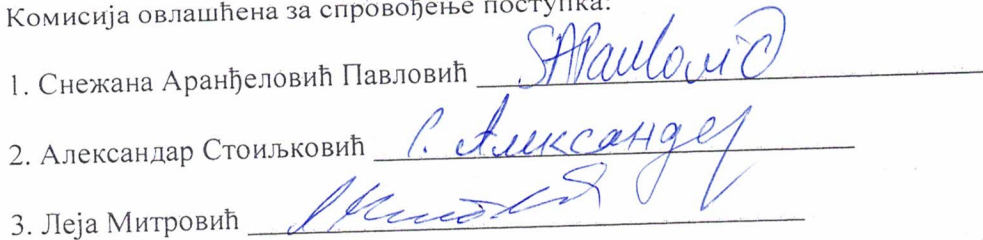 Комисија овлашћена за спровођење поступка:
1. Снежана Аранђеловић Павловић SAPavlović
2. Александар Стоиљковић С. Александар
3. Леја Митровић